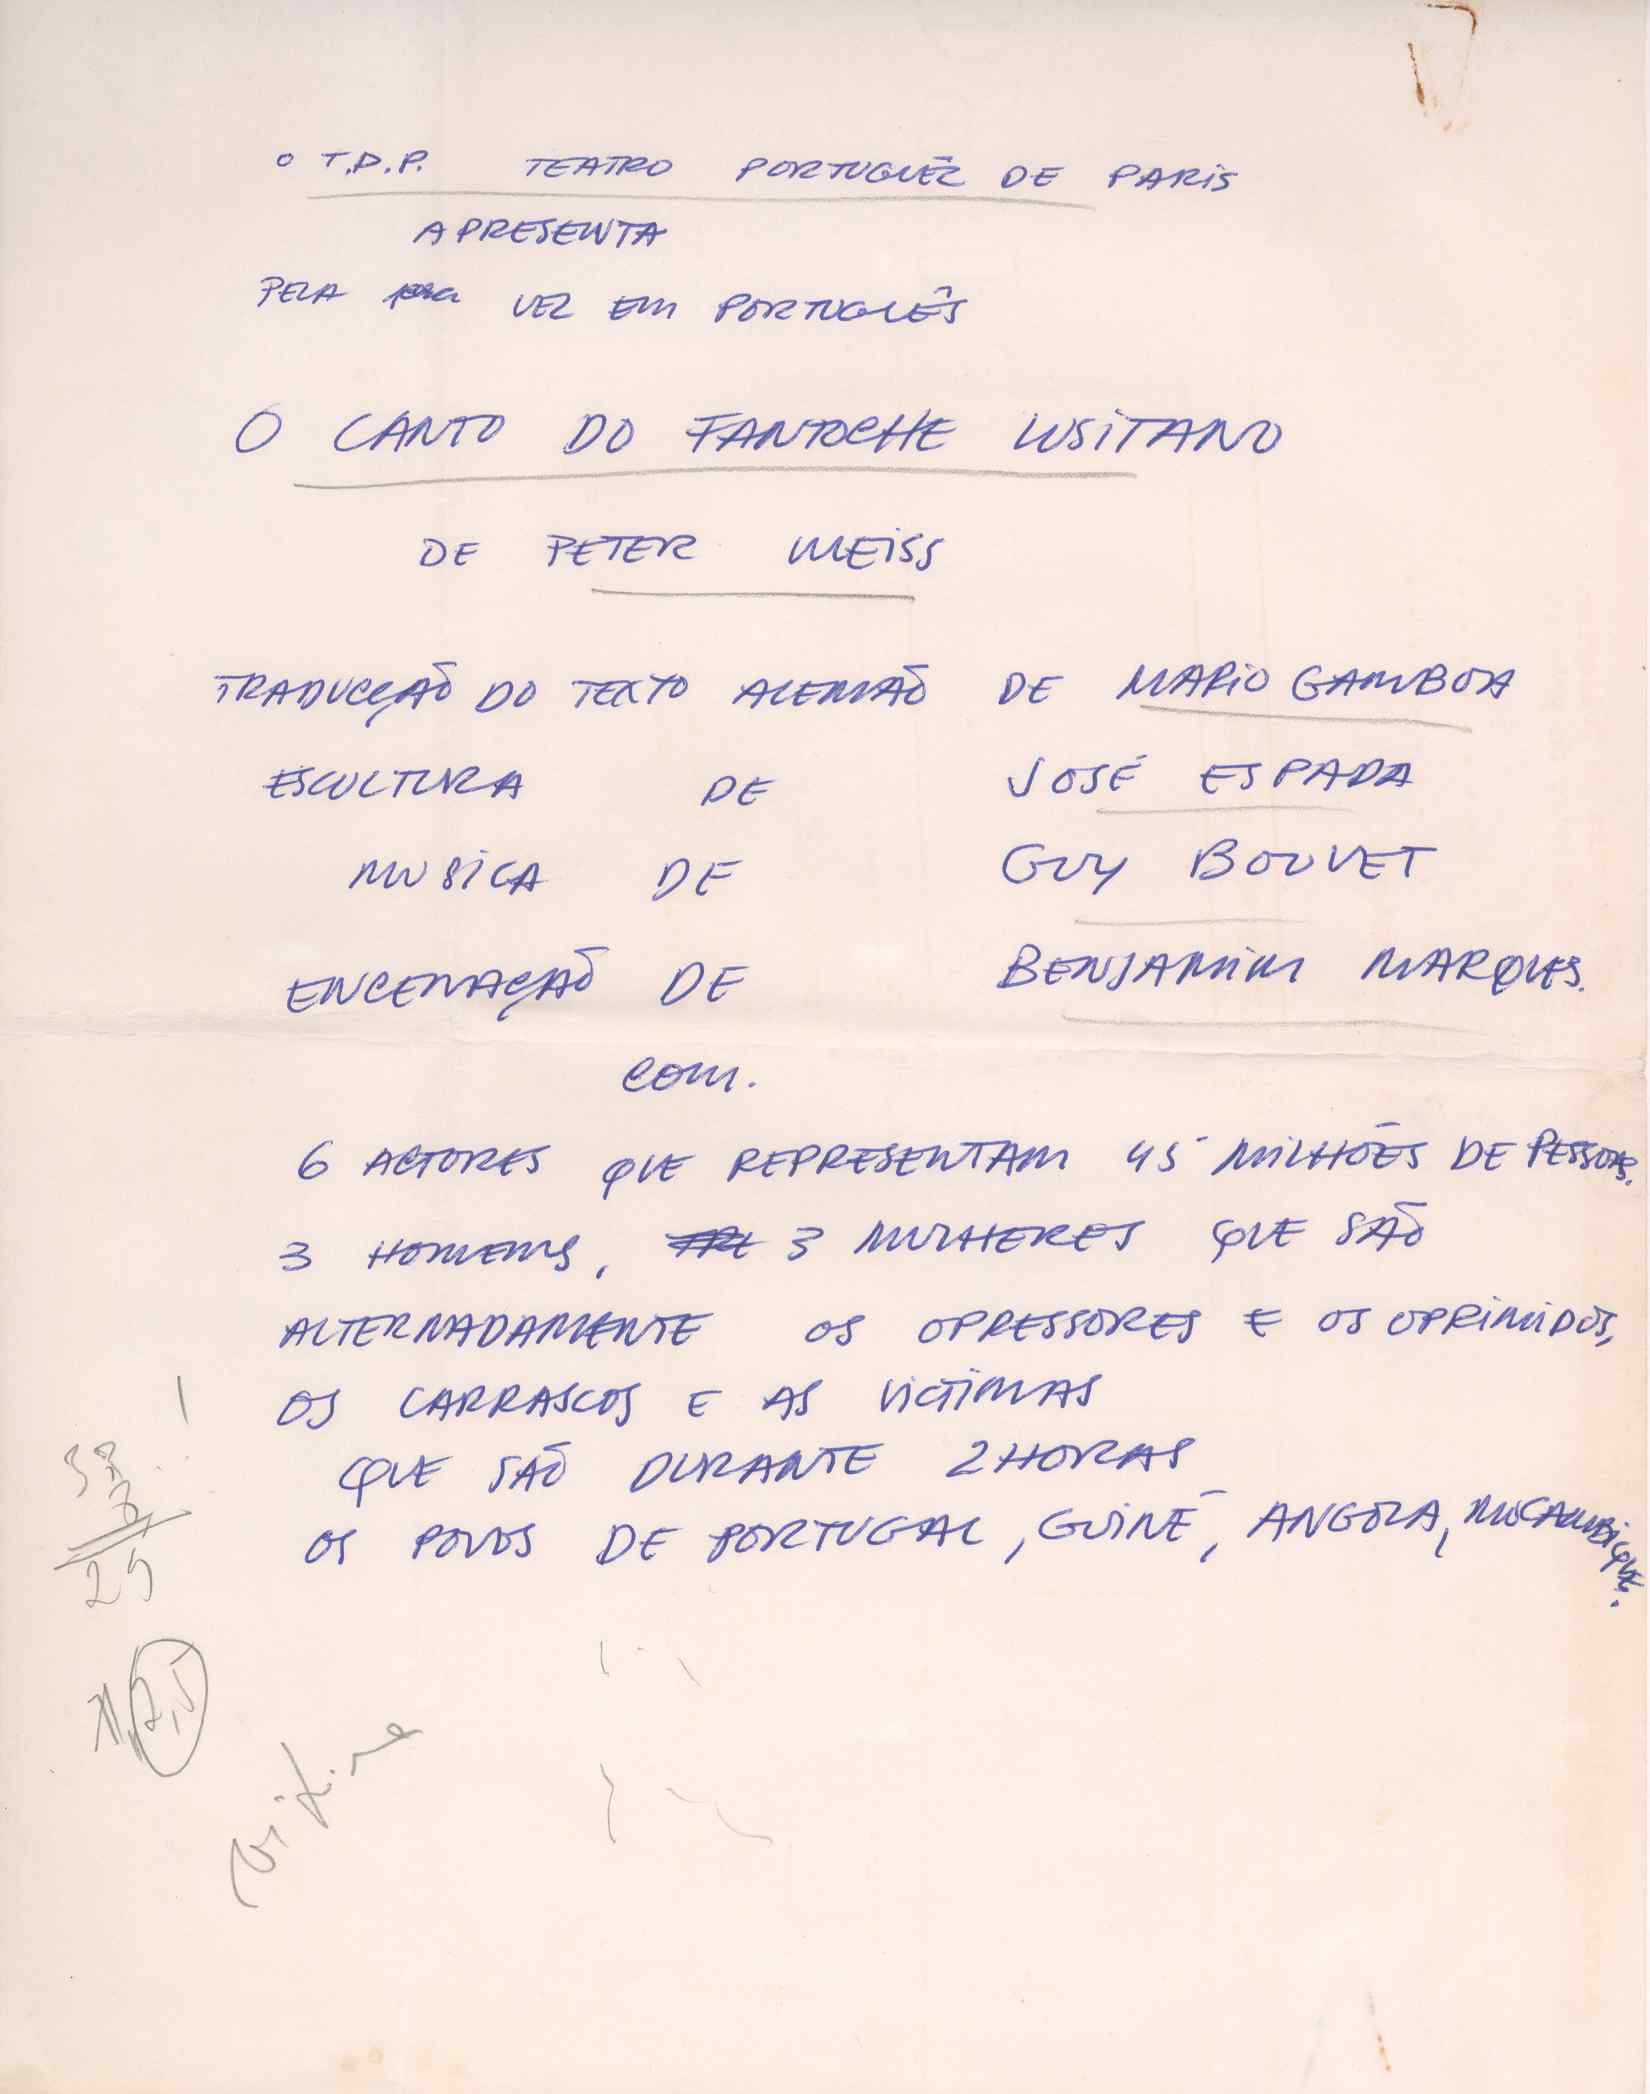 O T.D.P. TEATRO PORTUGUÊZ DE PARIS
APRESENTA
PELA VEZ EM PORTUGUÊS
O CANTO DO FANTOCHE LUSITANO
DE PETER WEISS
TRADUCÇÃO DO TEXTO ALEMÃO DE MARIO GAMBOA
ESCULTURA DE JOSÉ ESPADA
MUSICA DE GUY BOUVET
ENCENAÇÃO DE BENJAMIM MARQUES.
COM.
6 ACTORES QUE REPRESENTAM 45 MILHÕES DE PESSOAS.
3 HOMENS, 3 MULHERES QUE SÃO
ALTERNADAMENTE OS OPRESSORES E OS OPRIMIDOS,
OS CARRASCOS E AS VICTIMAS
QUE SÃO DURANTE 2 HORAS
OS POVOS DE PORTUGAL, GUINÉ, ANGOLA, MOCAMBIQUE.
25